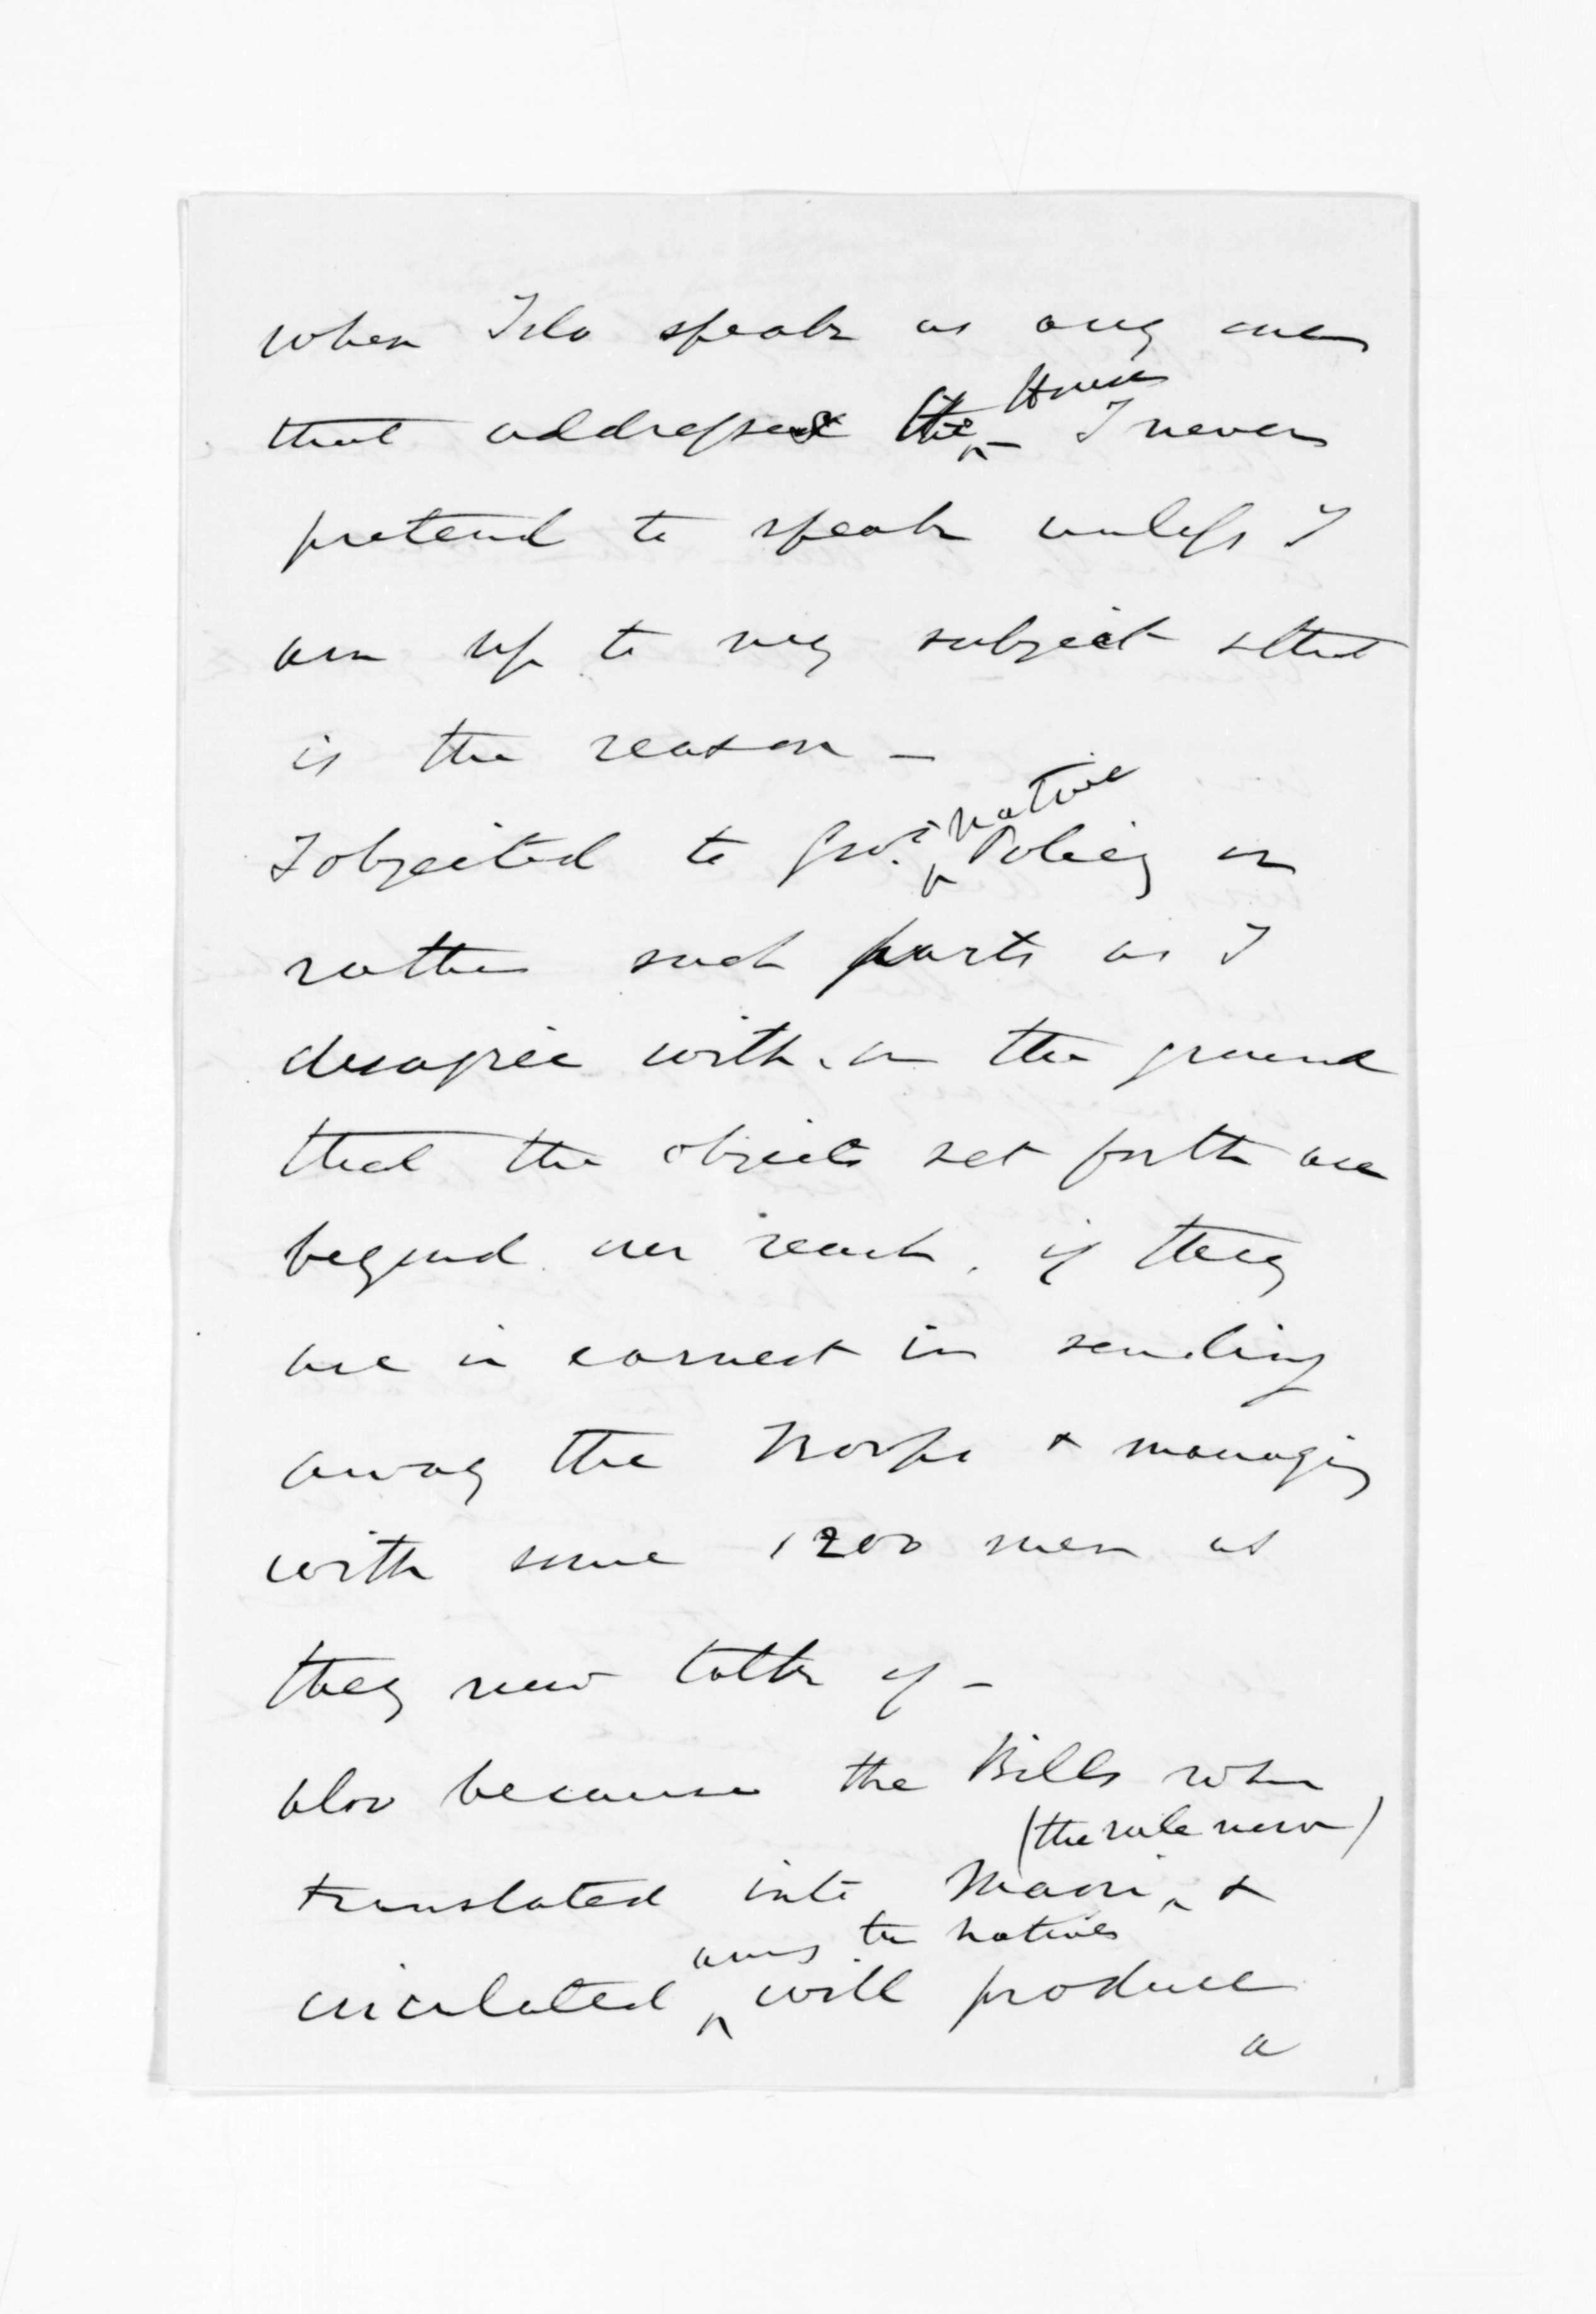 when I do speak as any one
that addresses the House - I never
pretend to speak unless I
am up to my subject & that
is the reason -
I objected to Govt. native Policy or
rather such parts as I
disagree with, on the ground
that the objects set forth are
beyond our reach, if they
are in earnest in sending
away the Troops & managing
with some 1200 men as
they now talk of -
also because the Bills when
translated into Maori (the rule now) &
circulated among the natives will produce
a